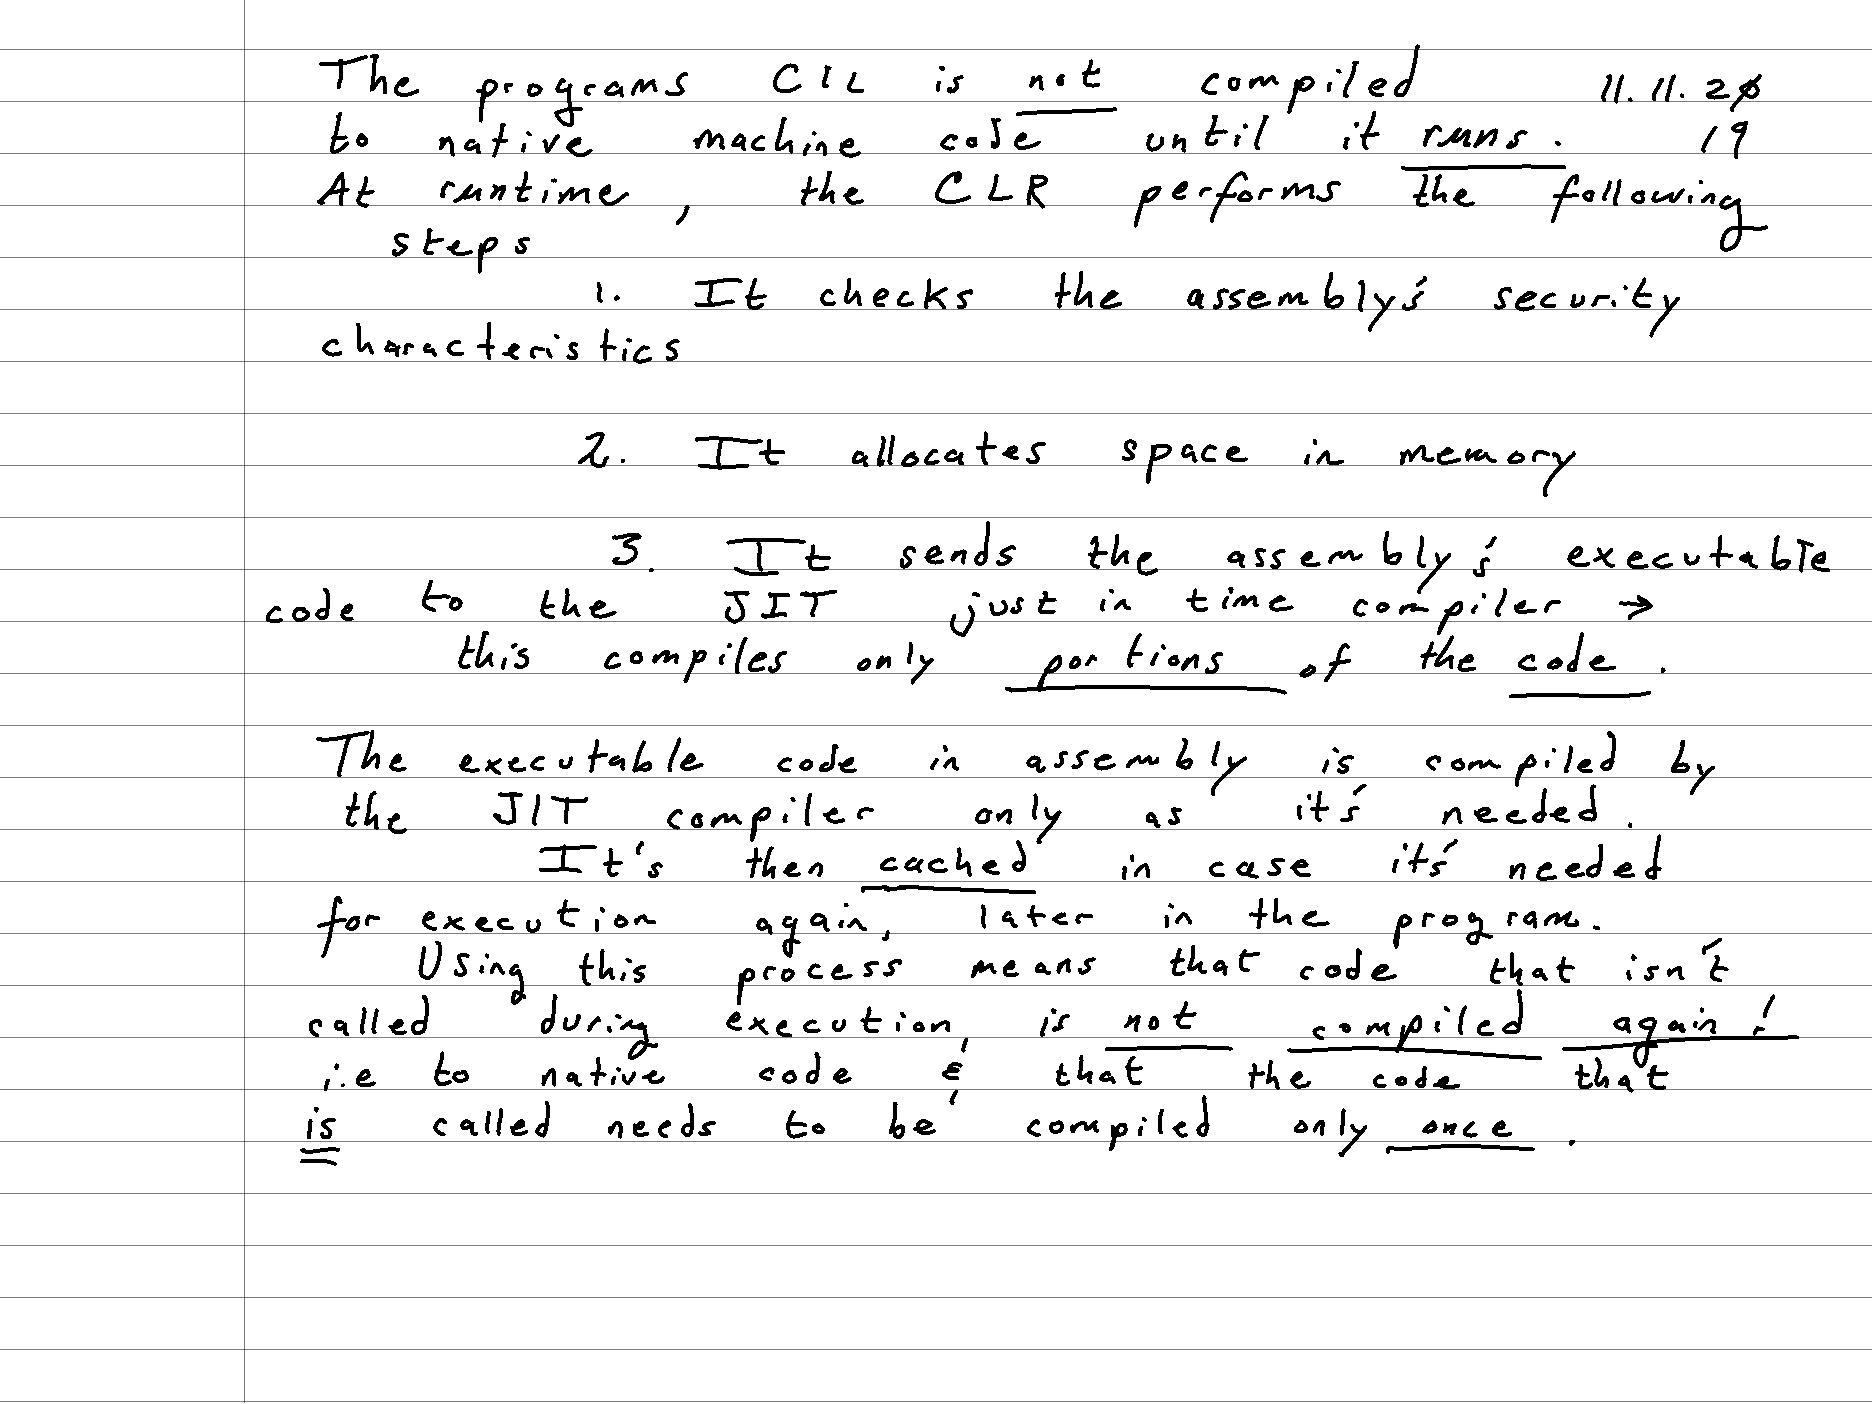 The programs CIL is not compiled 11.11.20
to native machine code until it runs. 19
At runtime, the CLR performs the following
steps
1. It checks the assembly's security
characteristics
2. It allocates space in memory
3. It sends the assembly's executable
code to the JIT just in time compiler →
this compiles only portions of the code.
The executable code in assembly is compiled by
the JIT compiler only as it's needed.
It's then cached in case it's needed
for execution again, later in the program.
Using this process means that code that isn't
called during execution, is not compiled again!
i.e to native code & that the code that
is called needs to be compiled only once.